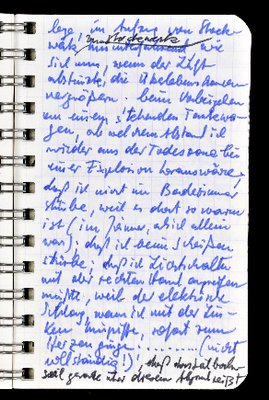 lege, im Aufzug von Stock
zu Stockwerk
wie
sich um, wenn der Lift
abstürzt, die Überlebenschancen
vergrößern. beim Vorbeigehen
an einem stehenden Tankwa-
gen, ab welchem Abstand ich
wieder aus der Todeszone bei
einer Explosion heraus wäre,
daß ich nicht im Badezimmer
stürbe, weil es dort so warm
ist (im Jänner, als ich allein
war), daß ich beim Scheißen
stürbe, daß ich Lichtschalter
mit der rechten Hand angreifen
müßte, weil der elektrische
Schlag, wenn ich mit der Lin-
ken hingriffe, sofort zum
Herzen ginge! ......... (nicht
vollständig!) daß das Seil
Seil gerade über diesem Abgrund reißt